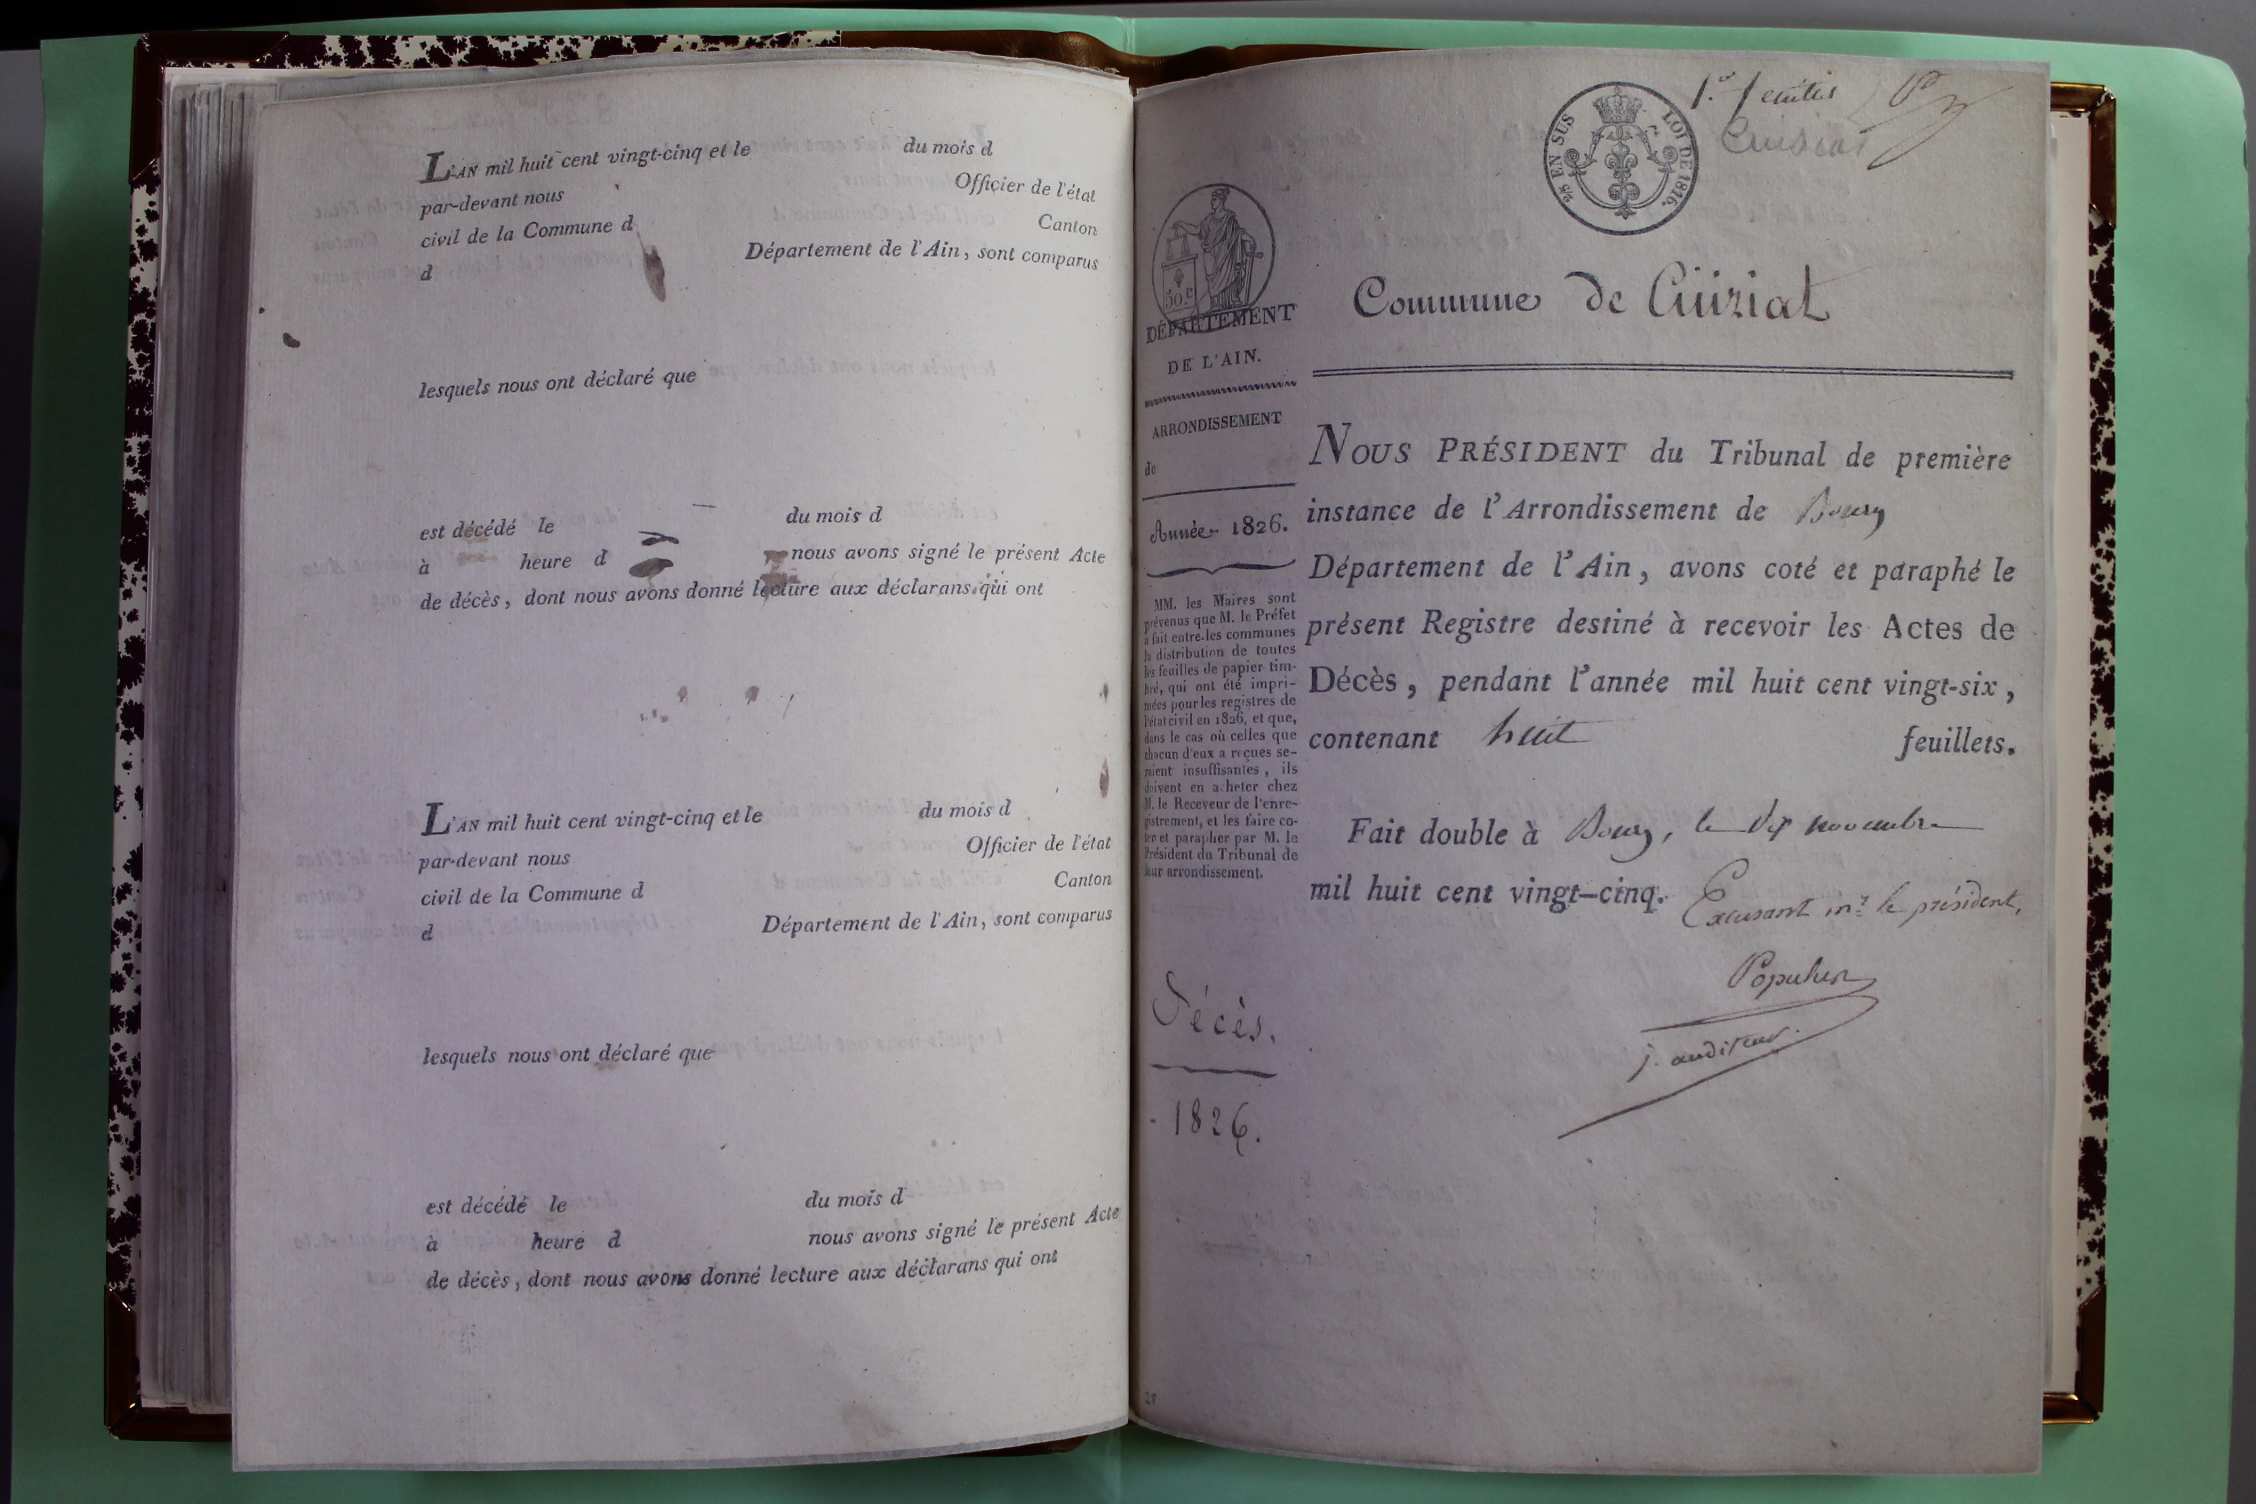 L'AN mil huit cent vingt-cinq et le du mois d
par-devant nous Officier de l'état
civil de la Commune d Canton
d Département de l'Ain, sont comparus
lesquels nous ont déclaré que
est décédé le du mois d
à heure d nous avons signé le présent Acte
de décès, dont nous avons donné lecture aux déclarans qui ont
L'AN mil huit cent vingt-cinq et le du mois d
par-devant nous Officier de l'état
civil de la Commune d Canton
d Département de l'Ain, sont comparus
lesquels nous ont déclaré que
est décédé le du mois d
à heure d nous avons signé le présent Acte
de décès, dont nous avons donné lecture aux déclarans qui ont
1.er
Cuisiat
EN SUS LOI DE 1816.
50 c
DÉPARTEMENT
DE L'AIN.
ARRONDISSEMENT
de
Année 1826.
MM. les Maires sont
prévenus que M. le Préfet
a fait entre les communes
la distribution de toutes
les feuilles de papier tim-
bré, qui ont été impri-
mées pour les registres de
l'état civil en 1826, et que,
dans le cas où celles que
chacun d'eux a reçues se-
raient insuffisantes, ils
doivent en acheter chez
M. le Receveur de l'enre-
gistrement, et les faire co-
ter et parapher par M. le
Président du Tribunal de
leur arrondissement.
Décès.
1826.
Commune de Cuiziat
NOUS PRÉSIDENT du Tribunal de première
instance de l'Arrondissement de Bourg
Département de l'Ain, avons coté et paraphé le
présent Registre destiné à recevoir les Actes de
Décès, pendant l'année mil huit cent vingt-six,
contenant huit feuillets.
Fait double à Bourg, le dix novembre
mil huit cent vingt-cinq.
Excusant mr. le président,
Populus
j. auditeur.